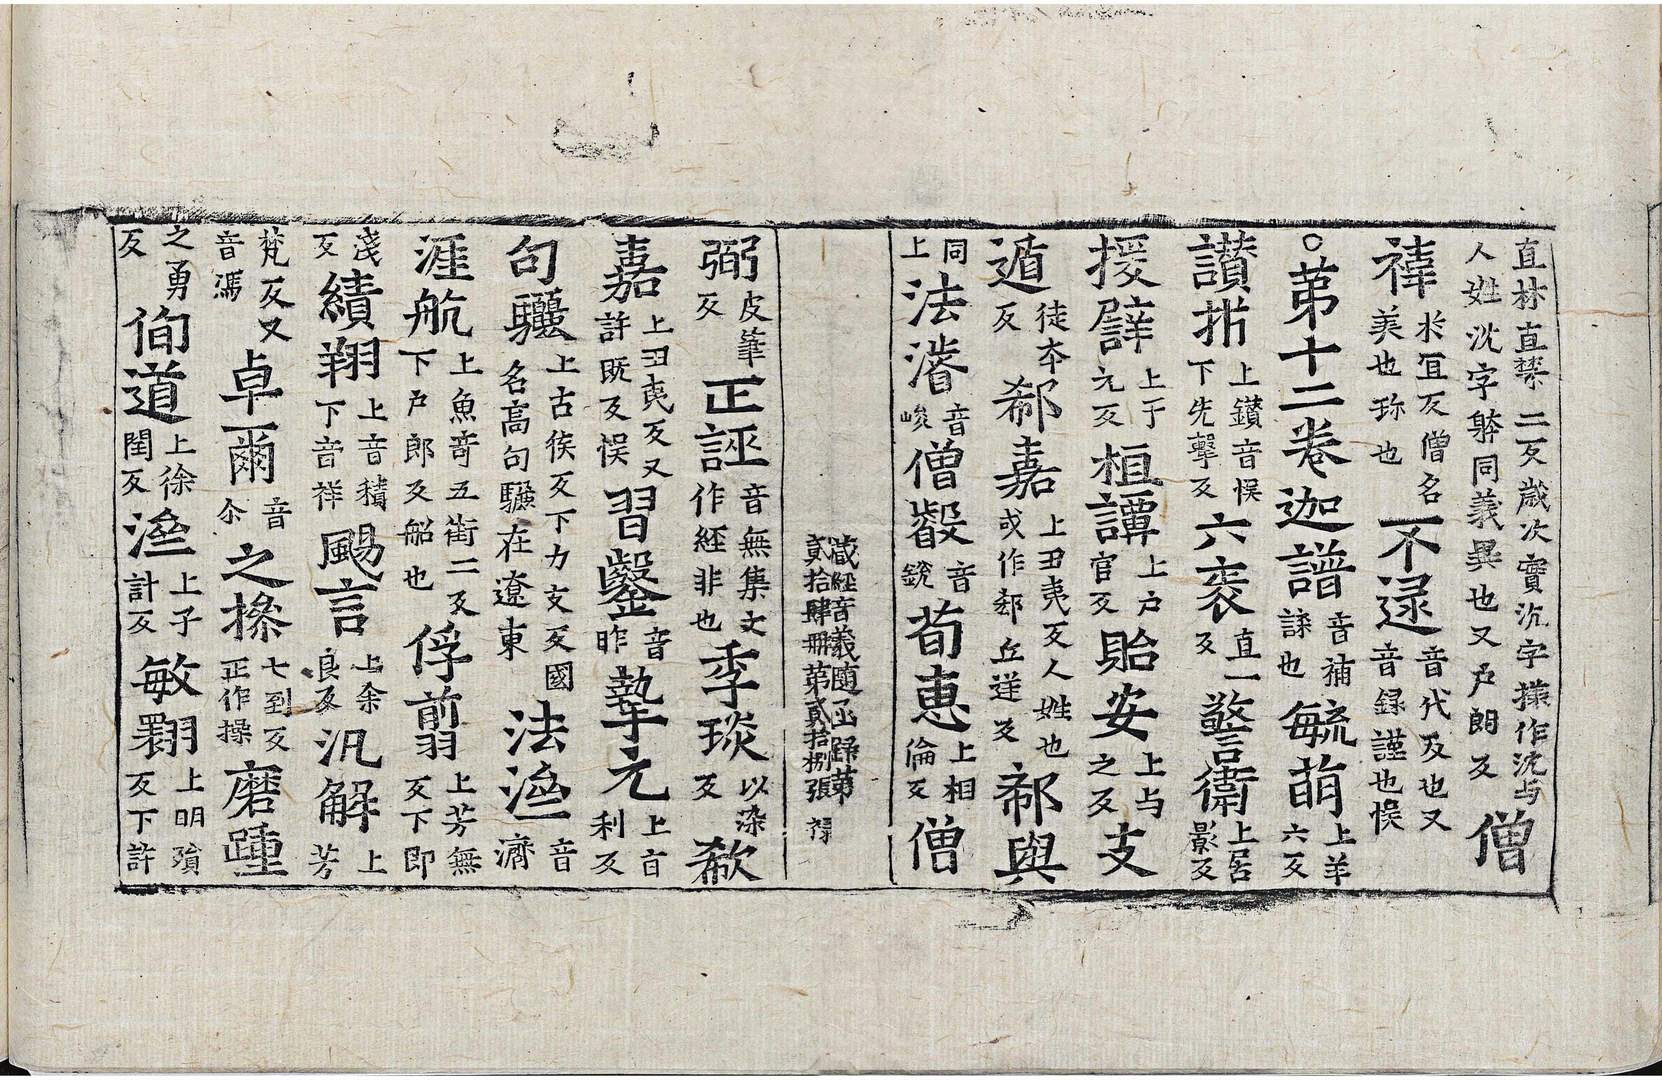 直林直禁二反嵗次實沉字㨾作沈与人姓沈字觧同義異也又户朗反僧
禕於宜反僧名美也珎也不逯音代及也又音録謹也悮
○苐十二卷迦譜音補謀也毓萌上羊六反
讃㧘上鑚音悮下先擊反六袠直一反警衛上居影反
援譬上于元反桓譚上户官反貽安上与之反支
遁徒夲反郗嘉上丑夷反人姓也或作郄丘逆反郗與
同上法濬音峻僧叡音銳荀恵上相倫反僧
藏経音義隨函録苐貳拾肆冊苐貳拾捌張
弼皮筆反正誣音無集文作経非也季琰以染反郗
嘉上丑夷反又許既反悮習鑿音昨摰元上音利反
句驪上古侯反下力支反國名高句驪在遼東法濟音濟
涯航上魚竒五街二反下户郎反船也俘翦上芳無反下即
淺反績翔上音積下音祥颺言上余良反汎解上芳
梵反又音馮卓爾音尒之摻七到反正作操磨踵
之勇反侚道上徐閏反濟上子計反敏㓺上明殞反下許